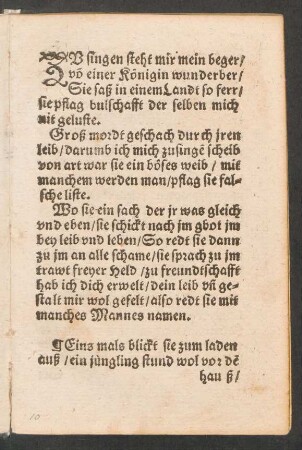 ZU singen steht mir mein beger/
võ einer Königin wunderber/
Sie saß in einem Landt so ferr/
sie pflag bulschafft der selben mich
nit geluste.
Groß mordt geschach durch jren
leib/darumb ich mich zusingẽ scheib
von art war sie ein böses weib/mit
manchem werden man/pflag sie fal-
sche liste.
Wo sie ein sach der jr was gleich
vnd eben/sie schickt nach jm gbot jm
bey leib vnd leben/So redt sie dann
zu jm an alle schame/sie sprach zu jm
trawt freyer Held/zu freundtschafft
hab ich dich erwelt/dein leib vñ ge-
stalt mir wol gefelt/also redt sie mit
manches Mannes namen.
¶Eins mals blickt sie zum laden
auß/ein jüngling stund wol vor dẽ
hauß/
10